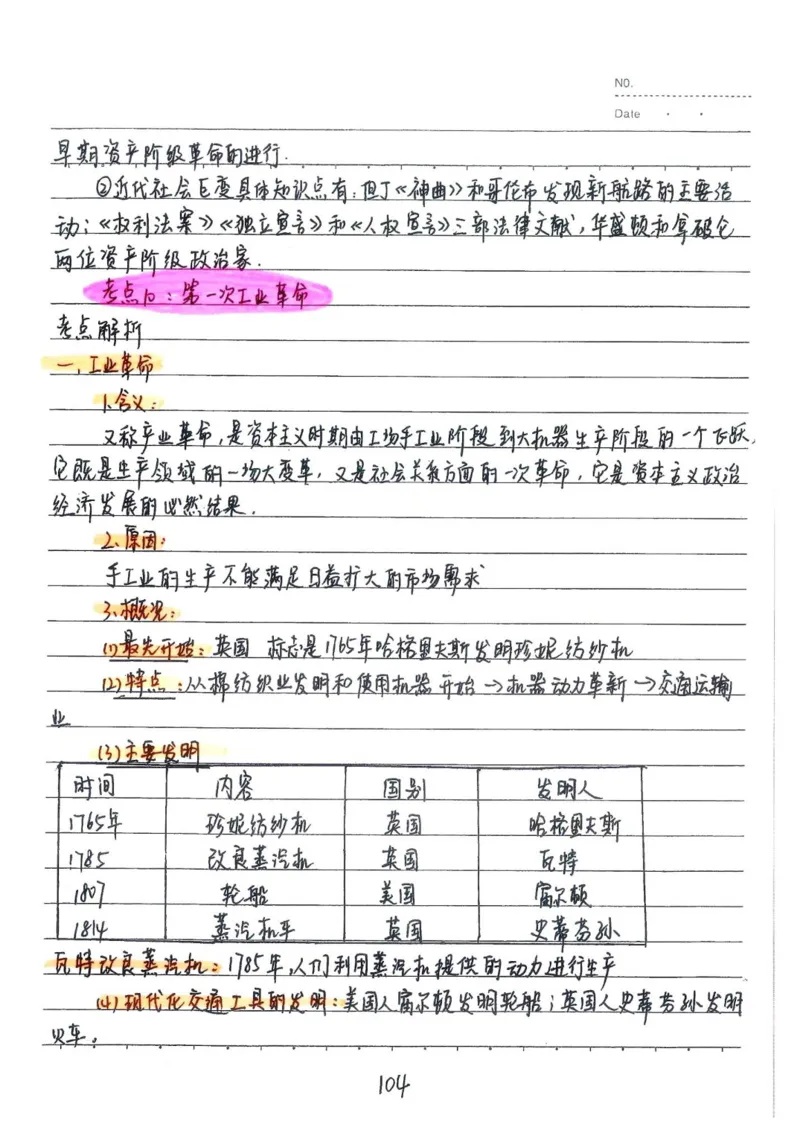 NO.
Date
早期资产阶级革命的进行.
②近代社会巨变具体知识点有:但丁《神曲》和哥伦布发现新航路的主要活
动;《权利法案》《独立宣言》和《人权宣言》三部法律文献,华盛顿和拿破仑
两位资产阶级政治家.
考点10:第一次工业革命
考点解析
一,工业革命
1.含义:
又称产业革命,是资本主义时期由工场手工业阶段到大机器生产阶段的一个飞跃,
它既是生产领域的一场大变革,又是社会关系方面的一次革命,它是资本主义政治
经济发展的必然结果.
2.原因:
手工业的生产不能满足日益扩大的市场需求
3.概况:
(1)最先开始:英国 标志是1765年哈格里夫斯发明珍妮纺纱机
(2)特点:从棉纺织业发明和使用机器开始→机器动力革新→交通运输
业
(3)主要发明
时间 内容 国别 发明人
1765年 珍妮纺纱机 英国 哈格里夫斯
1785 改良蒸汽机 英国 瓦特
1807 轮船 美国 富尔顿
1814 蒸汽机车 英国 史蒂芬孙
瓦特改良蒸汽机:1785年,人们利用蒸汽机提供的动力进行生产
(4)现代化交通工具的发明:美国人富尔顿发明轮船;英国人史蒂芬孙发明
火车。
104